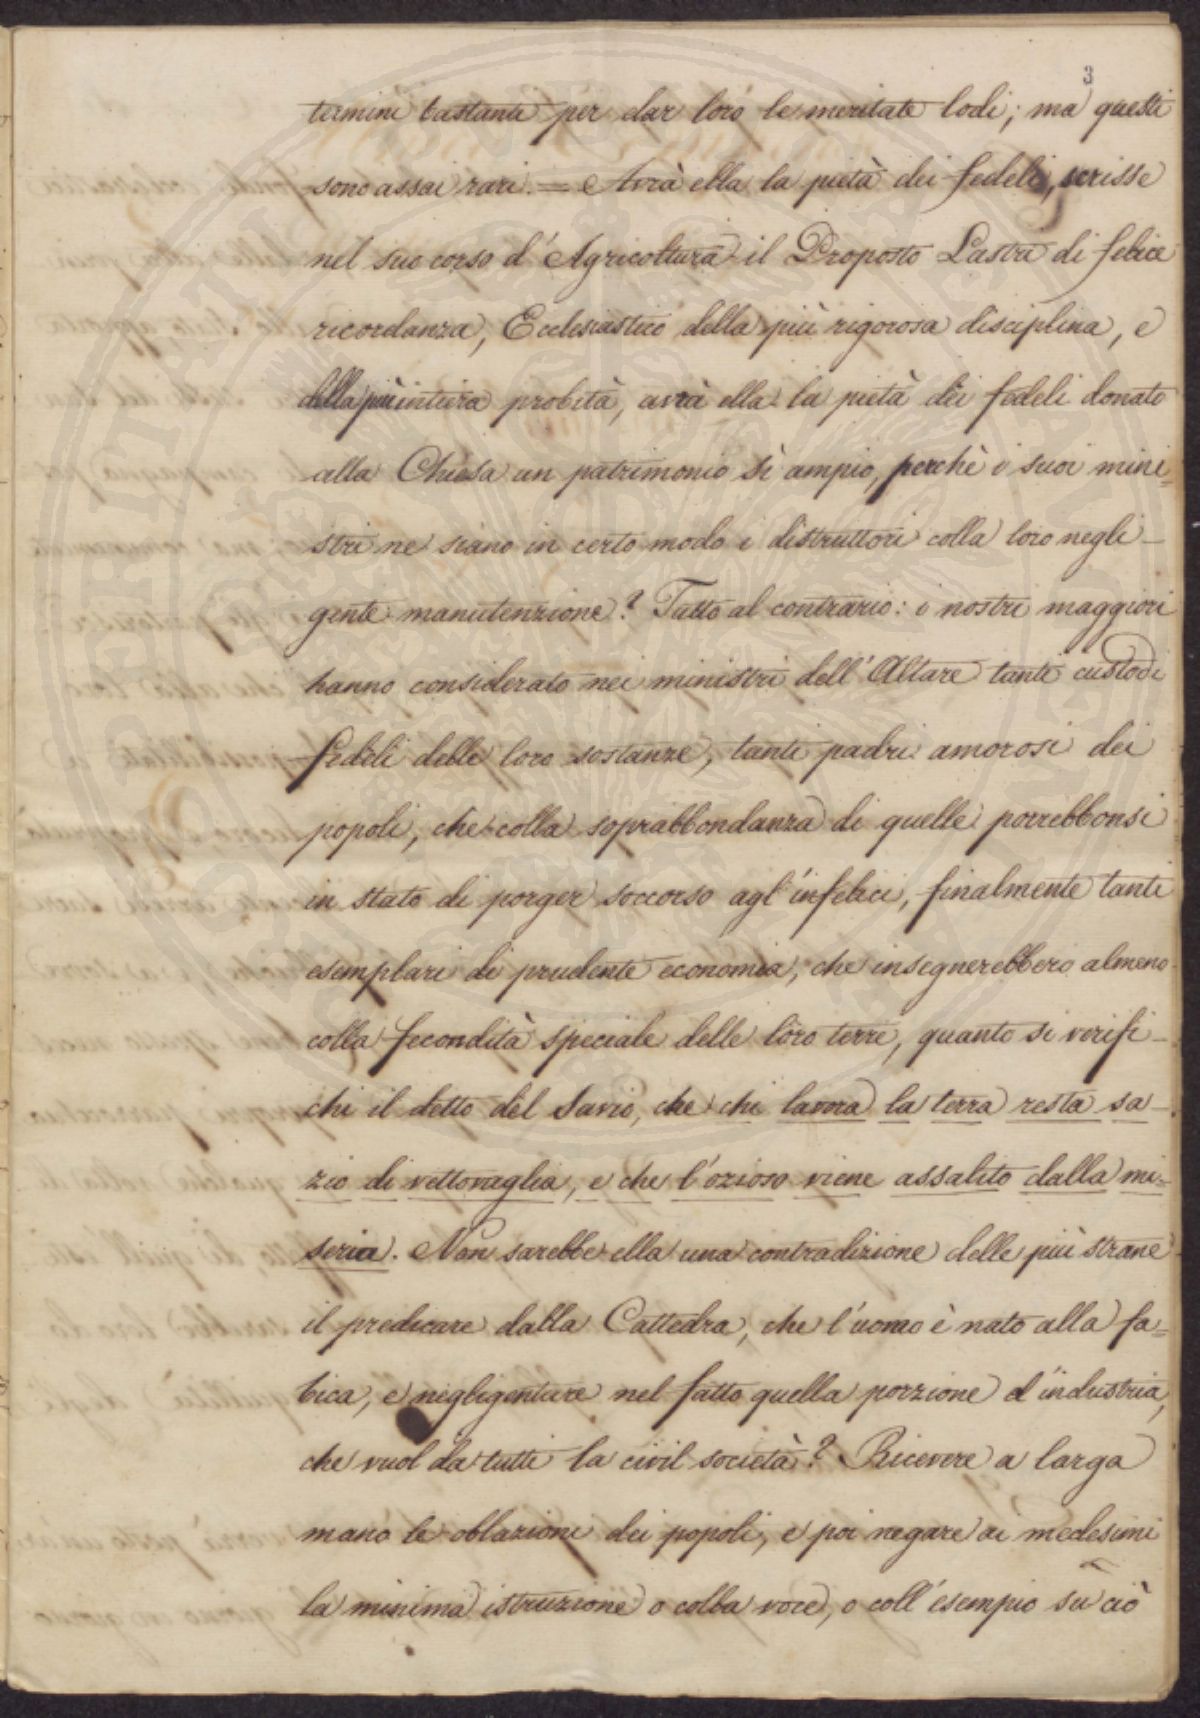 3
termini bastanti per dar loro le meritate lodi; ma questi
sono assai rari. = Avrà ella la pietà dei fedeli, scrisse
nel suo corso d'Agricoltura il Proposto Lastri di felice
ricordanza, Ecclesiastico della più rigorosa disciplina, e
della più intiera probità, avrà ella la pietà dei fedeli donato
alla Chiesa un patrimonio sì ampio, perchè i suoi mini=
stri ne siano in certo modo i distruttori colla loro negli-
gente manutenzione? Tutto al contrario: i nostri maggiori
hanno considerato nei ministri dell'Altare tanti custodi
fedeli delle loro sostanze, tanti padri amorosi dei
popoli, che colla soprabbondanza di quelle porrebbonsi
in stato di porger soccorso agl'infelici, finalmente tanti
esemplari di prudente economia, che insegnerebbero almeno
colla fecondità speciale delle loro terre, quanto si verifi-
chi il detto del Savio, che chi lavora la terra resta sa-
zio di vettovaglia, e che l'ozioso viene assalito dalla mi=
seria. Non sarebbe ella una contradizione delle più strane
il predicare dalla Cattedra, che l'uomo è nato alla fa=
tica, e negligentare nel fatto quella porzione d'industria,
che vuol da tutti la civil società? Ricevere a larga
mano le oblazioni dei popoli, e poi negare ai medesimi
la minima istruzione o colla voce, o coll'esempio su ciò